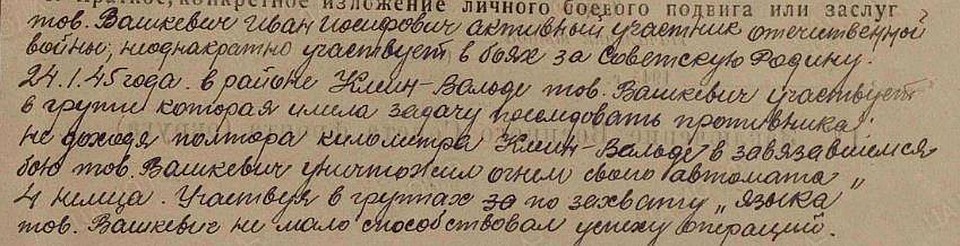 Краткое, конкретное изложение личного боевого подвига или заслуг
тов. Вашкевич Иван Иосифович активный участник отечественной
войны, неоднократно участвует в боях за Советскую Родину.
24.1.45 года. в районе Клейн-Вальде тов. Вашкевич участвует
в групе которая имела задачу последовать противника
не доходя полтора километра Клейн-Вальде в завязавшемся
бою тов. Вашкевич уничтожил огнем своего автомата
4 немца. Участвуя в группах за по захвату „языка“
тов. Вашкевич не мало способствовал успеху операций.